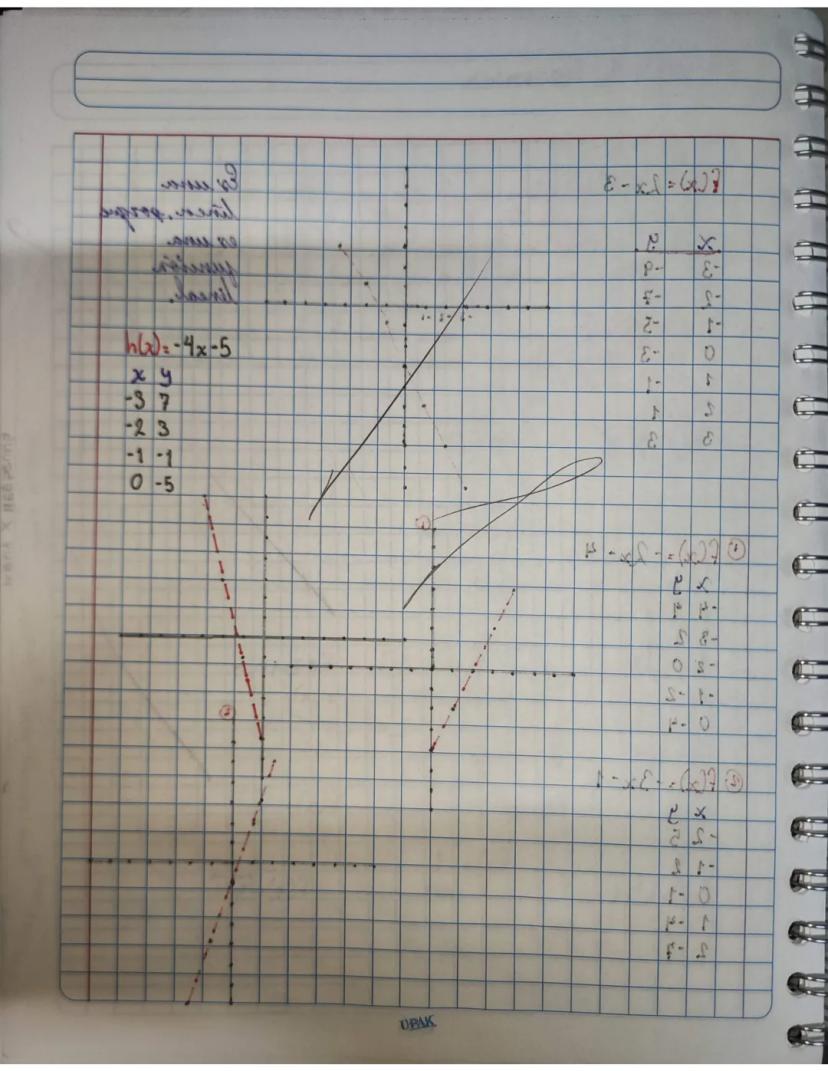 Es una
linea. porque
es una
función
lineal.
h(x)=-4x-5
x y
-3 7
-2 3
-1 -1
0 -5
f(x)=2x-3
x y
-3 -9
-2 -7
-1 -5
0 -3
1 -1
2 1
3 3
① f(x)=-2x-4
x y
-4 4
-3 2
-2 0
-1 -2
0 -4
② f(x)=-3x-1
x y
-2 5
-1 2
0 -1
1 -4
2 -7
①
②